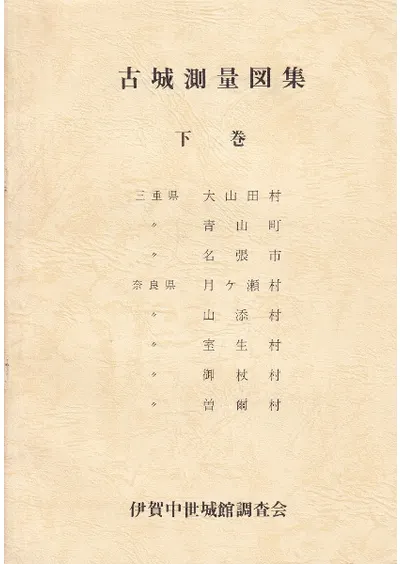 古城測量図集
下巻
三重県 大山田村
〃 青山町
〃 名張市
奈良県 月ケ瀬村
〃 山添村
〃 室生村
〃 御杖村
〃 曽爾村
伊賀中世城館調査会